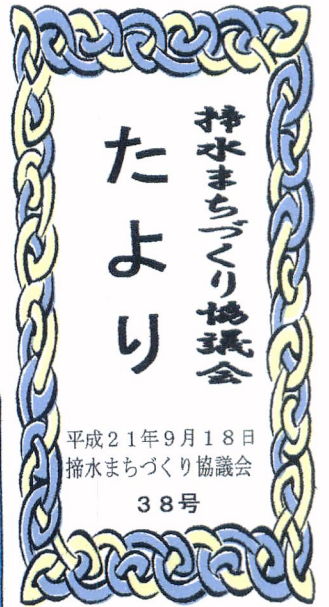 揥水まちづくり協議会
たより
平成21年9月18日
揥水まちづくり協議会
38号